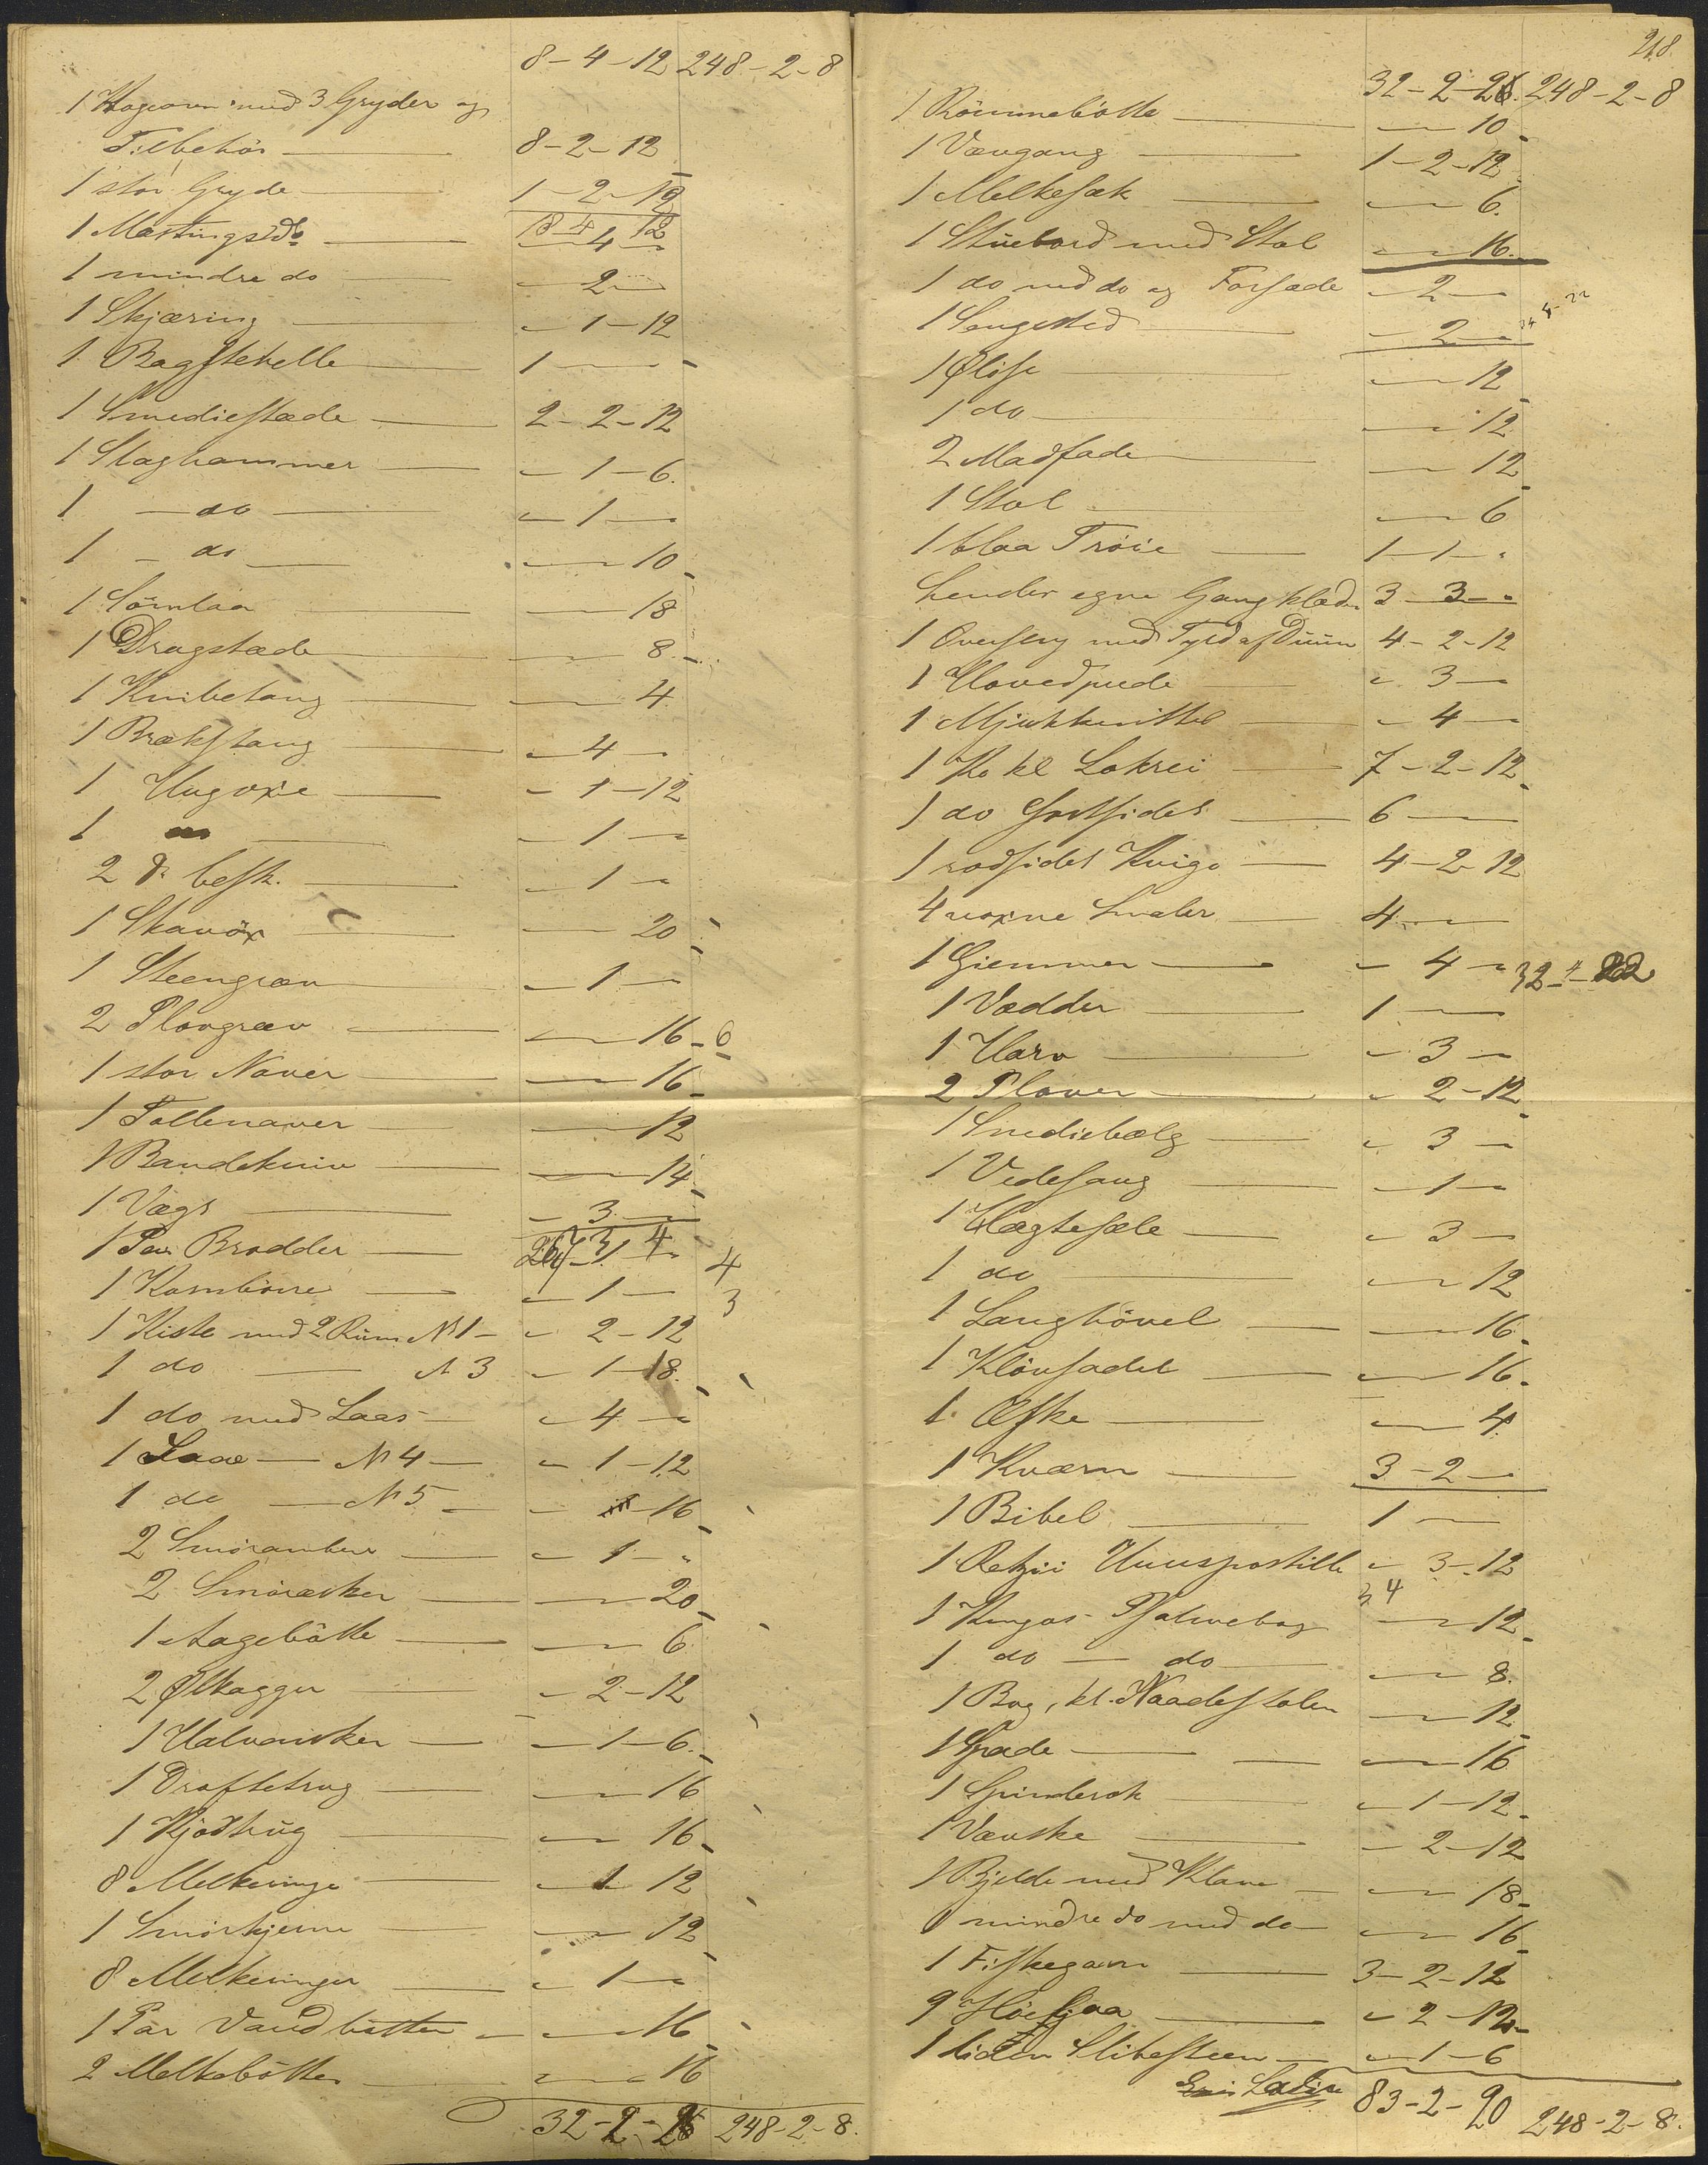 8 - 4 - 12 248 - 2 - 8
1 Kageovn med 3 Gryder og
Tilbehör 8 - 2 - 12
1 stor Gryde 1 - 2 - 12
18 4 12
1 Mæstings do - 4 -
1 mindre do - 2 -
1 Skjæring - 1 - 12
1 Bagstehelle 1 -
1 Smediestæde 2 - 2 - 12
1 Slaghammer - 1 - 6.
1 - do - - 1 -
1 - do - 10
1 Sömlaa - 18
1 Dragstæde - 8.
1 Knibetang - 4
1 Brækstang - 4 -
1 Hugoxe - 1 - 12
1 - 1 -
2 do besk. - 1 -
1 Skavöx - 20
1 Steengræv - 1 -
2 Plovgræv - 16 - 6
1 stor Naver - 16
1 Tollenaver - 12
1 Bandekniv - 14
1 Vægt - 3 -
1 Par Brodder - 1 - 4
1 Kornbörie - 1 - 3
1 Kiste med 2 Rüm N 1 - - 2 - 12
1 do N 3 - 1 - 18.
1 do med Laas - 4 -
1 N 4 - - 1 - 12
1 do N 5 - - 16
2 Smörambar - 1 - "
2 Smöræsker - 20
1 bötte - 6
2 Ølkagger - 2 - 12
1 - 1 - 6.
1 Droftetrug - 16
1 Kjödtrüg - 16
8 Melkeringe - 1 12
1 Smörkjerne - 12
8 Melkeringer - 1 -
1 Par Vandbötter - 16
2 Melkebötter - 16
32 - 2 - 248 - 2 - 8.
218.
32 - 2 - 248 - 2 - 8
1 Römmebötte - 10
1 Vævgang 1 - 2 - 12
1 Melkesæk - 6.
1 Stüebord med Stol - 16.
1 do med do og Forsæde - 2 -
1 Sengested - 2 -
1 Øløse - 12
1 do - 12
2 Madfade - 12
1 Stol - 6
1 blaa Tröie 1 - 1 - "
hendes egne Gangklæder 3 3 - "
1 Overseng med Fyld af Duun 4 - 2 - 12
1 Hovedpude - 3 -
1 Mjukknittel - 4 -
1 Ko kl Lokrei 7 - 2 - 12
1 do Sortsidet 6 -
1 rødsidet Kvige 4 - 2 - 12
4 voxne Smaler 4 -
1 Giemmer - 4 - 32 - 4 - 22
1 Vædder 1 -
1 Harv - 3 -
2 Plover - 2 - 12
1 Smediebælg - 3 -
1 Vedesaug - 1 -
1 Hægtesæle - 3 -
1 do - 12
1 Langhövel - 16
1 Klövsadel - 16
1 Æske - 4
1 Kværn 3 - 2 -
1 Bibel 1 -
1 Retzii Huuspostille - 3 - 12
3 4
1 Kingos Psalmebog - 12
1 do - do - 8.
1 Bog, kl. Naadestolen - 12
1 Spade - 16
1 Spinderok - 1 - 12
1 Væuske - 2 - 12
1 Bjelde med Klave - 18
1 mindre do med do - 16
1 Fiskegarn 3 - 2 - 12
9 Höe - 2 - 12
1 liden Slibesteen - 1 - 6
83 - 2 - 20 248 - 2 - 8.